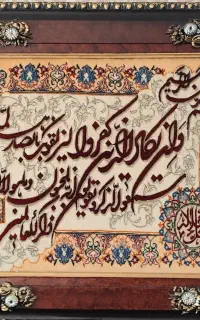 وان یکاد الذین کفروا لیزلقونک بابصارهم
سمعوا الذکر و یقولون انه لمجنون و ما هو الا
ذکر للعالمین